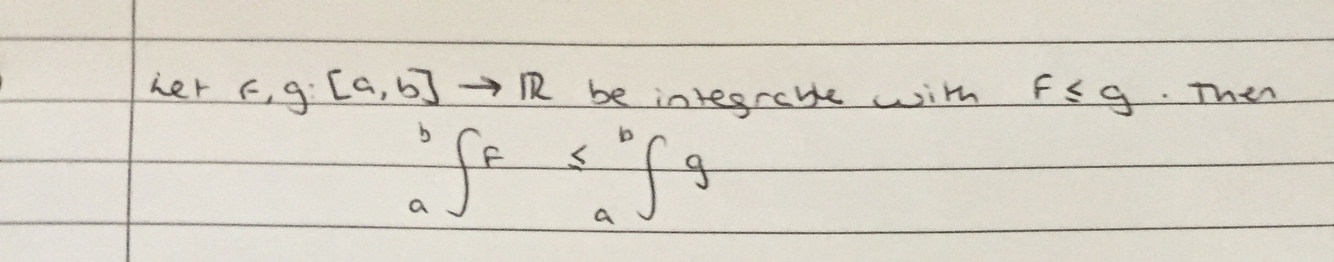 Let F, g: [a, b] → ℝ be integrable with F ≤ g. Then
ₐᵇ∫F ≤ ₐᵇ∫g